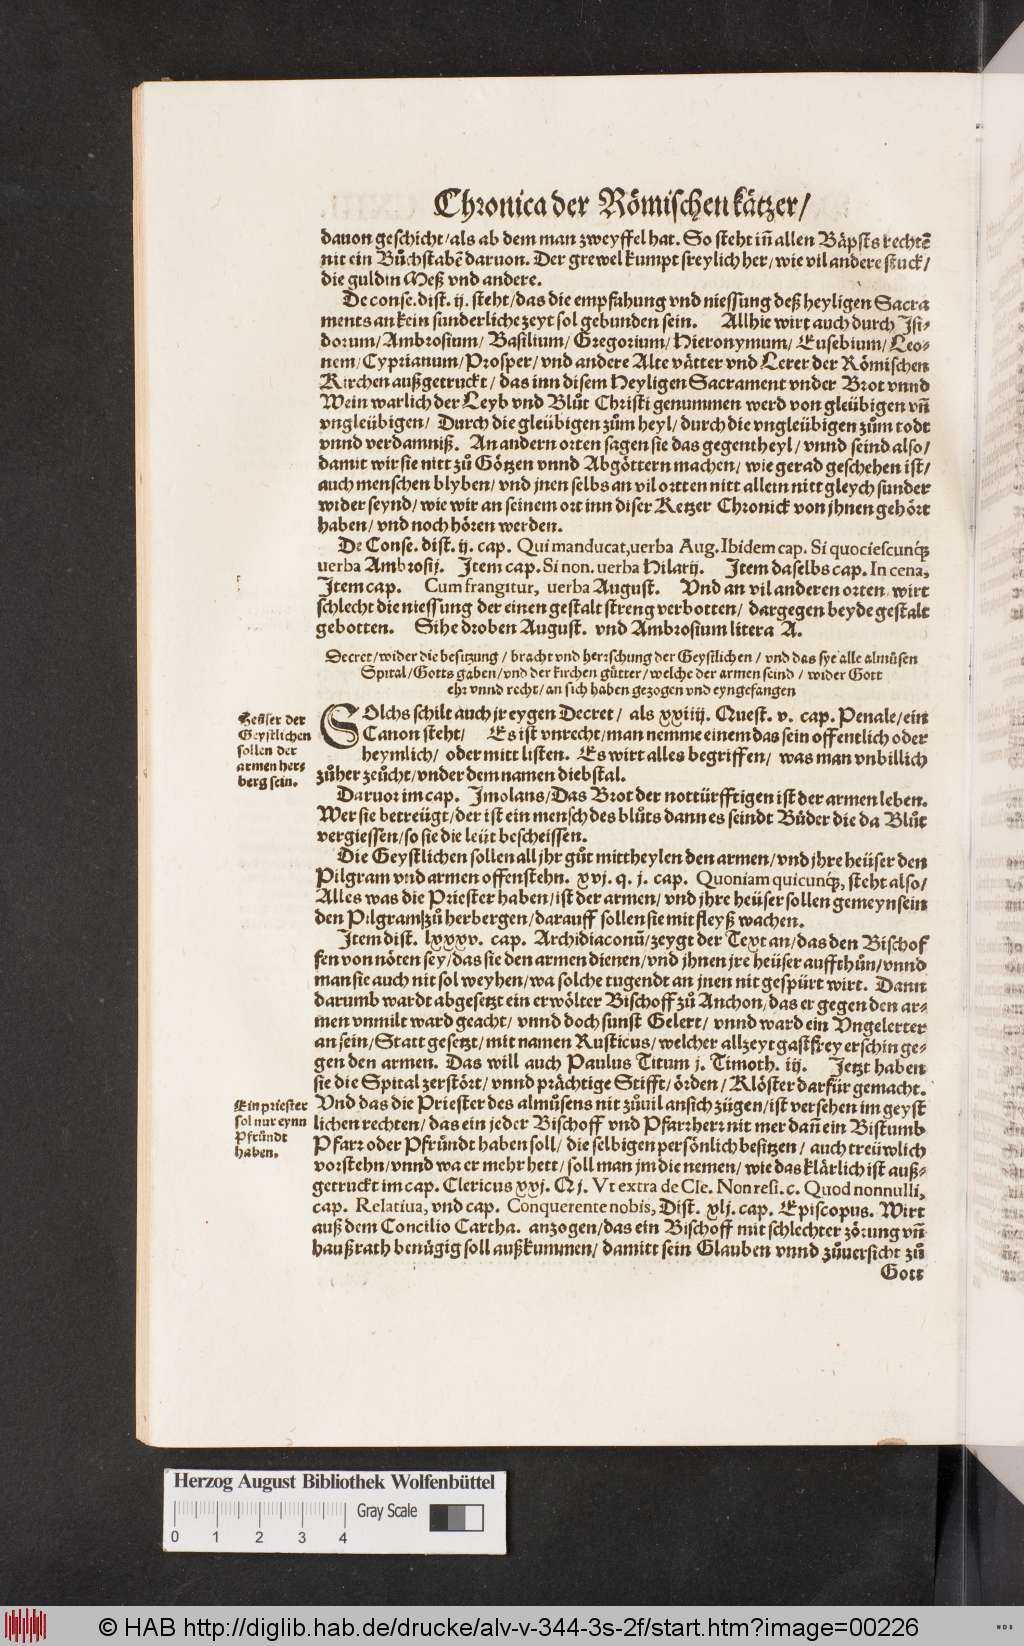 Chronica der Römischen kätzer/
dauon geschicht/als ab dem man zweyffel hat. So steht iñ allen Bäpsts rechtẽ
nit ein Bůchstabẽ daruon. Der grewel kumpt freylich her/wie vil andere stuck/
die guldin Meß vnd andere.
De conse.dist. ij. steht/das die empfahung vnd niessung deß heyligen Sacra
ments an kein sunderliche zeyt sol gebunden sein. Allhie wirt auch durch Isi-
dorum/Ambrosium/ Basilium/ Gregorium/ Hieronymum/ Eusebium/ Leo-
nem/Cyprianum/Prosper/vnd andere Alte vätter vnd Lerer der Römischen
Kirchen außgetruckt/ das inn disem Heyligen Sacrament vnder Brot vnnd
Wein warlich der Leyb vnd Blůt Christi genummen werd von gleübigen vñ
vngleübigen/ Durch die gleübigen zům heyl/ durch die vngleübigen zům todt
vnnd verdamniß. An andern orten sagen sie das gegentheyl/ vnnd seind also/
damit wir sie nitt zů Götzen vnnd Abgöttern machen/ wie gerad geschehen ist/
auch menschen blyben/ vnd jnen selbs an vil ortten nitt allein nitt gleych sunder
wider seynd/ wie wir an seinem ort inn diser Ketzer Chronick von jhnen gehört
haben/ vnd noch hören werden.
De Conse. dist. ij. cap. Qui manducat, uerba Aug. Ibidem cap. Si quociescunq́;
uerba Ambrosij. Item cap. Si non. uerba Hilarij. Item daselbs cap. In cena,
Item cap. Cum frangitur, uerba August. Vnd an vil anderen orten wirt
schlecht die niessung der einen gestalt streng verbotten/ dargegen beyde gestalt
gebotten. Sihe droben August. vnd Ambrosium litera A.
Decret/wider die besitzung/ bracht vnd herrschung der Geystlichen/ vnd das sye alle almůsen
Spital/Gotts gaben/vnd der kirchen gütter/welche der armen seind/ wider Gott
ehr vnnd recht/an sich haben gezogen vnd eyngefangen
Heüser der
Geystlichen
sollen der
armen her-
berg sein.
SOlchs schilt auch jr eygen Decret/ als xxiiij. Quest. v. cap. Penale/ein
Canon steht/ Es ist vnrecht/man nemme einem das sein offentlich oder
heymlich/ oder mitt listen. Es wirt alles begriffen/ was man vnbillich
zůher zeücht/vnder dem namen diebstal.
Daruor im cap. Imolans/Das Brot der nottürfftigen ist der armen leben.
Wer sie betreügt/der ist ein mensch des blůts dann es seindt Brüder die da Blůt
vergiessen/so sie die leüt bescheissen.
Die Geystlichen sollen all jhr gůt mittheylen den armen/vnd jhre heüser den
Pilgram vnd armen offenstehn. xvj. q. j. cap. Quoniam quicunq́;, steht also/
Alles was die Priester haben/ist der armen/ vnd jhre heüser sollen gemeyn sein
den Pilgram zů herbergen/darauff sollen sie mit fleyß wachen.
Item dist. lxxxv. cap. Archidiaconũ/zeygt der Text an/das den Bischof
fen von nöten sey/das sie den armen dienen/vnd jhnen jre heüser auffthůn/vnnd
man sie auch nit sol weyhen/wa solche tugendt an jnen nit gespürt wirt. Dann
darumb wardt abgesetzt ein erwölter Bischoff zů Anchon/das er gegen den ar-
men vnmilt ward geacht/ vnnd doch sunst Gelert/ vnnd ward ein Vngelerter
an sein/Statt gesetzt/mit namen Rusticus/welcher allzeyt gastfrey erschin ge-
gen den armen. Das will auch Paulus Titum j. Timoth. iij. Jetzt haben
sie die Spital zerstört/ vnnd prächtige Stifft/örden/ Klöster darfür gemacht.
Ein priester
sol nur eynn
Pfründt
haben.
Vnd das die Priester des almůsens nit zůuil an sich zügen/ist versehen im geyst
lichen rechten/ das ein jeder Bischoff vnd Pfarrherr nit mer dañ ein Bistumb
Pfarr oder Pfründt haben soll/ die selbigen persönlich besitzen/ auch treüwlich
vorstehn/vnnd wa er mehr hett/ soll man jm die nemen/ wie das klärlich ist auß-
getruckt im cap. Clericus xxj. Q j. Vt extra de Cle. Non resi. c. Quod nonnulli,
cap. Relatiua, vnd cap. Conquerente nobis, Dist. xlj. cap. Episcopus. Wirt
auß dem Concilio Cartha. anzogen/das ein Bischoff mit schlechter zörung vñ
haußrath benügig soll außkummen/ damitt sein Glauben vnnd zůuersicht zů
Gott
Herzog August Bibliothek Wolfenbüttel
Gray Scale
0 1 2 3 4
© HAB http://diglib.hab.de/drucke/alv-v-344-3s-2f/start.htm?image=00226